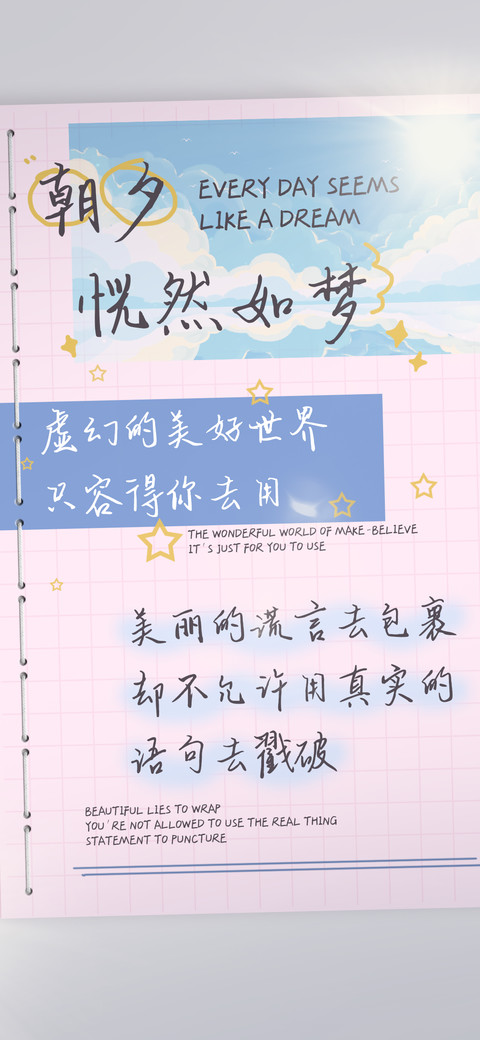 朝夕
EVERY DAY SEEMS
LIKE A DREAM
恍然如梦
虚幻的美好世界
只容得你去用
THE WONDERFUL WORLD OF MAKE-BELIEVE
IT'S JUST FOR YOU TO USE
美丽的谎言去包裹
却不允许用真实的
语句去戳破
BEAUTIFUL LIES TO WRAP
YOU'RE NOT ALLOWED TO USE THE REAL THING
STATEMENT TO PUNCTURE